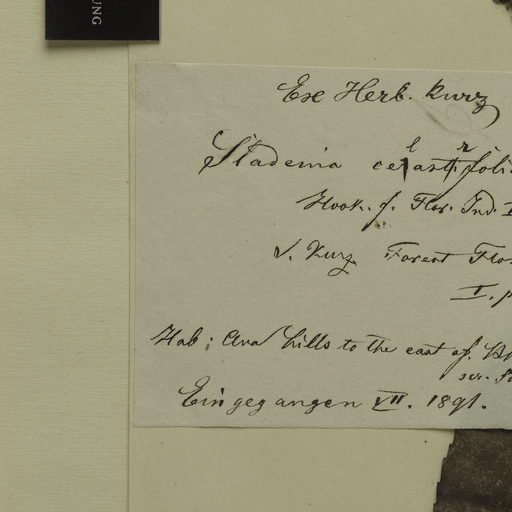 UNG
Exe Herb. Kurz
Sladenia celastrifoli
Hook. f. Flor. Ind. I
S. Kurz Forest Flo
I, p
Hab: Ava hills to the east of.
Eingegangen VII. 1891.